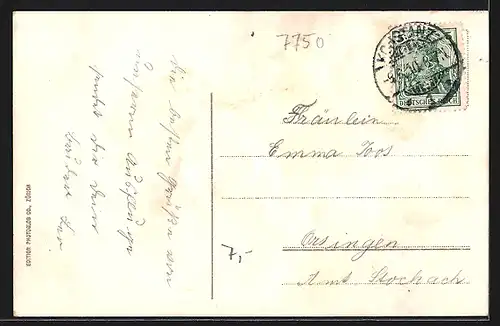 7750
KONSTANZ
DEUTSCHES REICH
Die besten Grüße von
unserem Ausfluge
sendet dir dein
Fräulein
Emma Joos
Orsingen
Amt Stockach
7,-
EDITION PHOTOGLOB CO., ZÜRICH